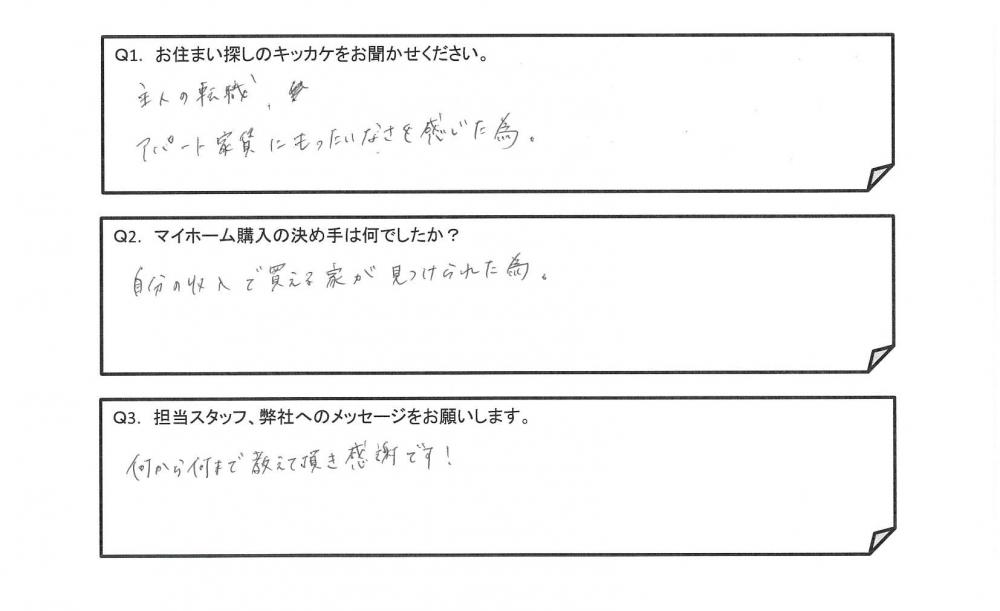 Q1. お住まい探しのキッカケをお聞かせください。
主人の転職、
アパート家賃にもったいなさを感じた為。
Q2. マイホーム購入の決め手は何でしたか？
自分の収入で買える家が見つけられた為。
Q3. 担当スタッフ、弊社へのメッセージをお願いします。
何から何まで教えて頂き感謝です！